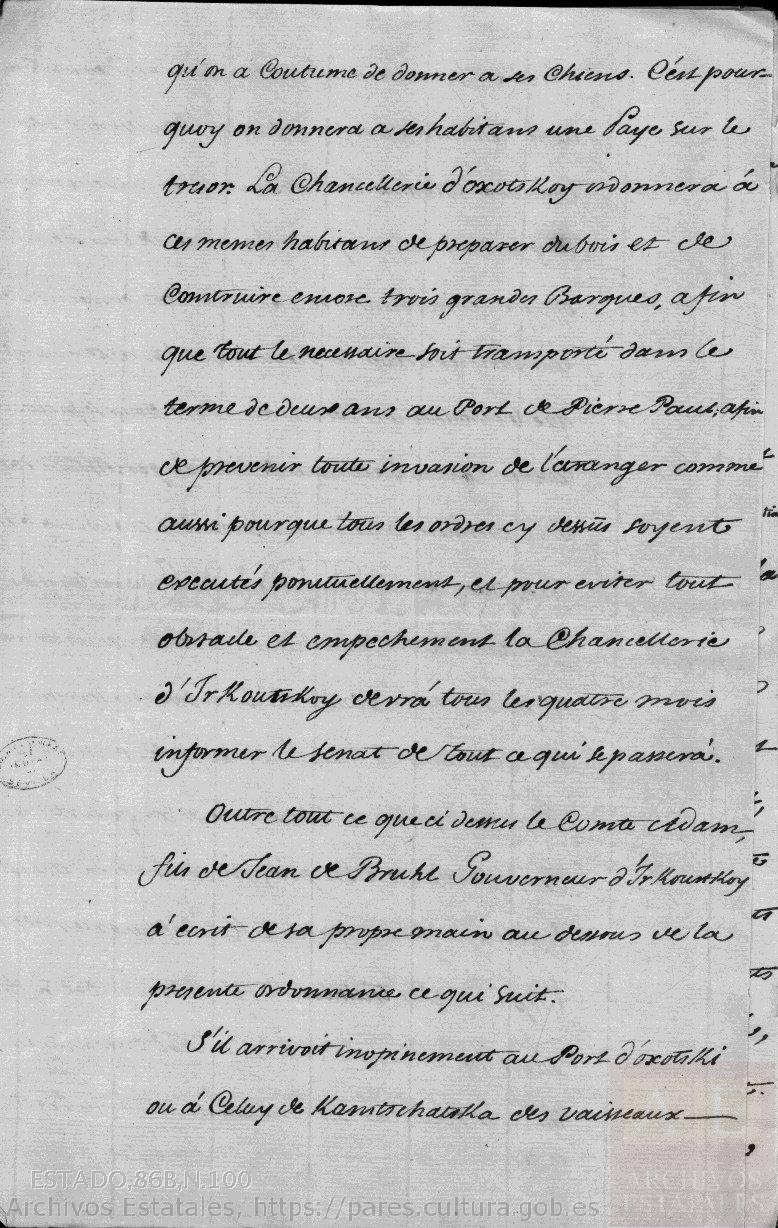 qu'on a Coutume de donner a ses Chiens. C'est pour=
quoy on donnera a ses habitans une Paye sur le
tresor. La Chancellerie d'oxotskoy ordonnera á
ces memes habitans de preparer du bois et de
Construire encore trois grandes Barques, afin
que tout le necessaire soit transporté dans le
terme de deux ans au Port de Pierre Paul, afin
de prevenir toute invasion de l'etranger comme
aussi pour que tous les ordres cy dessûs soyent
executés ponctuellement, et pour eviter tout
obstacle et empechement la Chancellerie
d'Irkoutskoy devrá tous les quatre mois
informer le senat de tout ce qui se passerá.
Outre tout ce que ci dessus le Comte Adam,
fils de Jean de Bruhl Gouverneur d'Irkoutskoy
á écrit de sa propre main au dessous de la
presente ordonnance ce qui suit.
S'il arrivoit inopinement au Port d'oxotski
ou á Celuy de Kamtschatska des vaisseaux
ESTADO,86B,N.100
Archivos Estatales, https://pares.cultura.gob.es
ARCHIVOS
ESTATALES